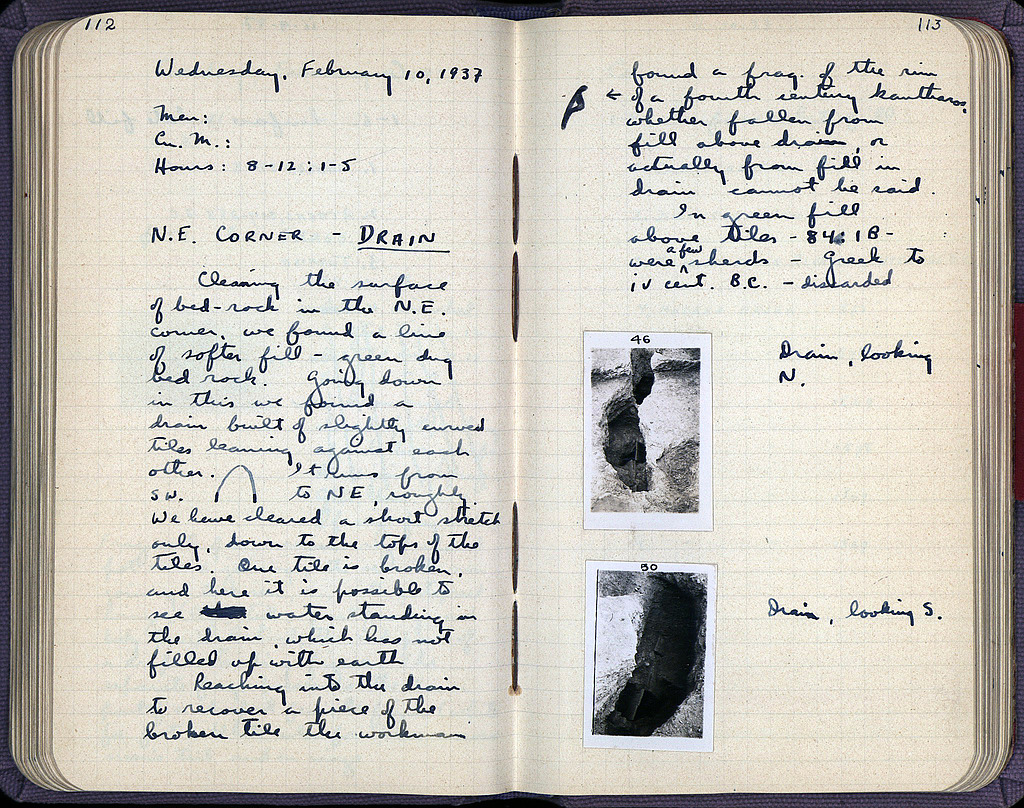 112
Wednesday, February 10, 1937
Men:
Cu. M.:
Hours: 8-12; 1-5
N.E. CORNER - DRAIN
Cleaning the surface
of bed-rock in the N.E.
corner, we found a line
of softer fill - green dug
bed rock. Going down
in this we found a
drain built of slightly curved
tiles leaning against each
other. It runs from
SW. to NE, roughly.
We have cleared a short stretch
only, down to the tops of the
tiles. One tile is broken,
and here it is possible to
see water standing in
the drain, which has not
filled up with earth
Reaching into the drain
to recover a piece of the
broken tile the workman
113
found a frag. of the rim
← of a fourth century kantharos,
whether fallen from
fill above drain, or
actually from fill in
drain cannot be said.
In green fill
above tiles - 84:1B -
were a few sherds - Greek to
iv cent. B.C. - discarded
46
Drain, looking
N.
50
Drain, looking S.